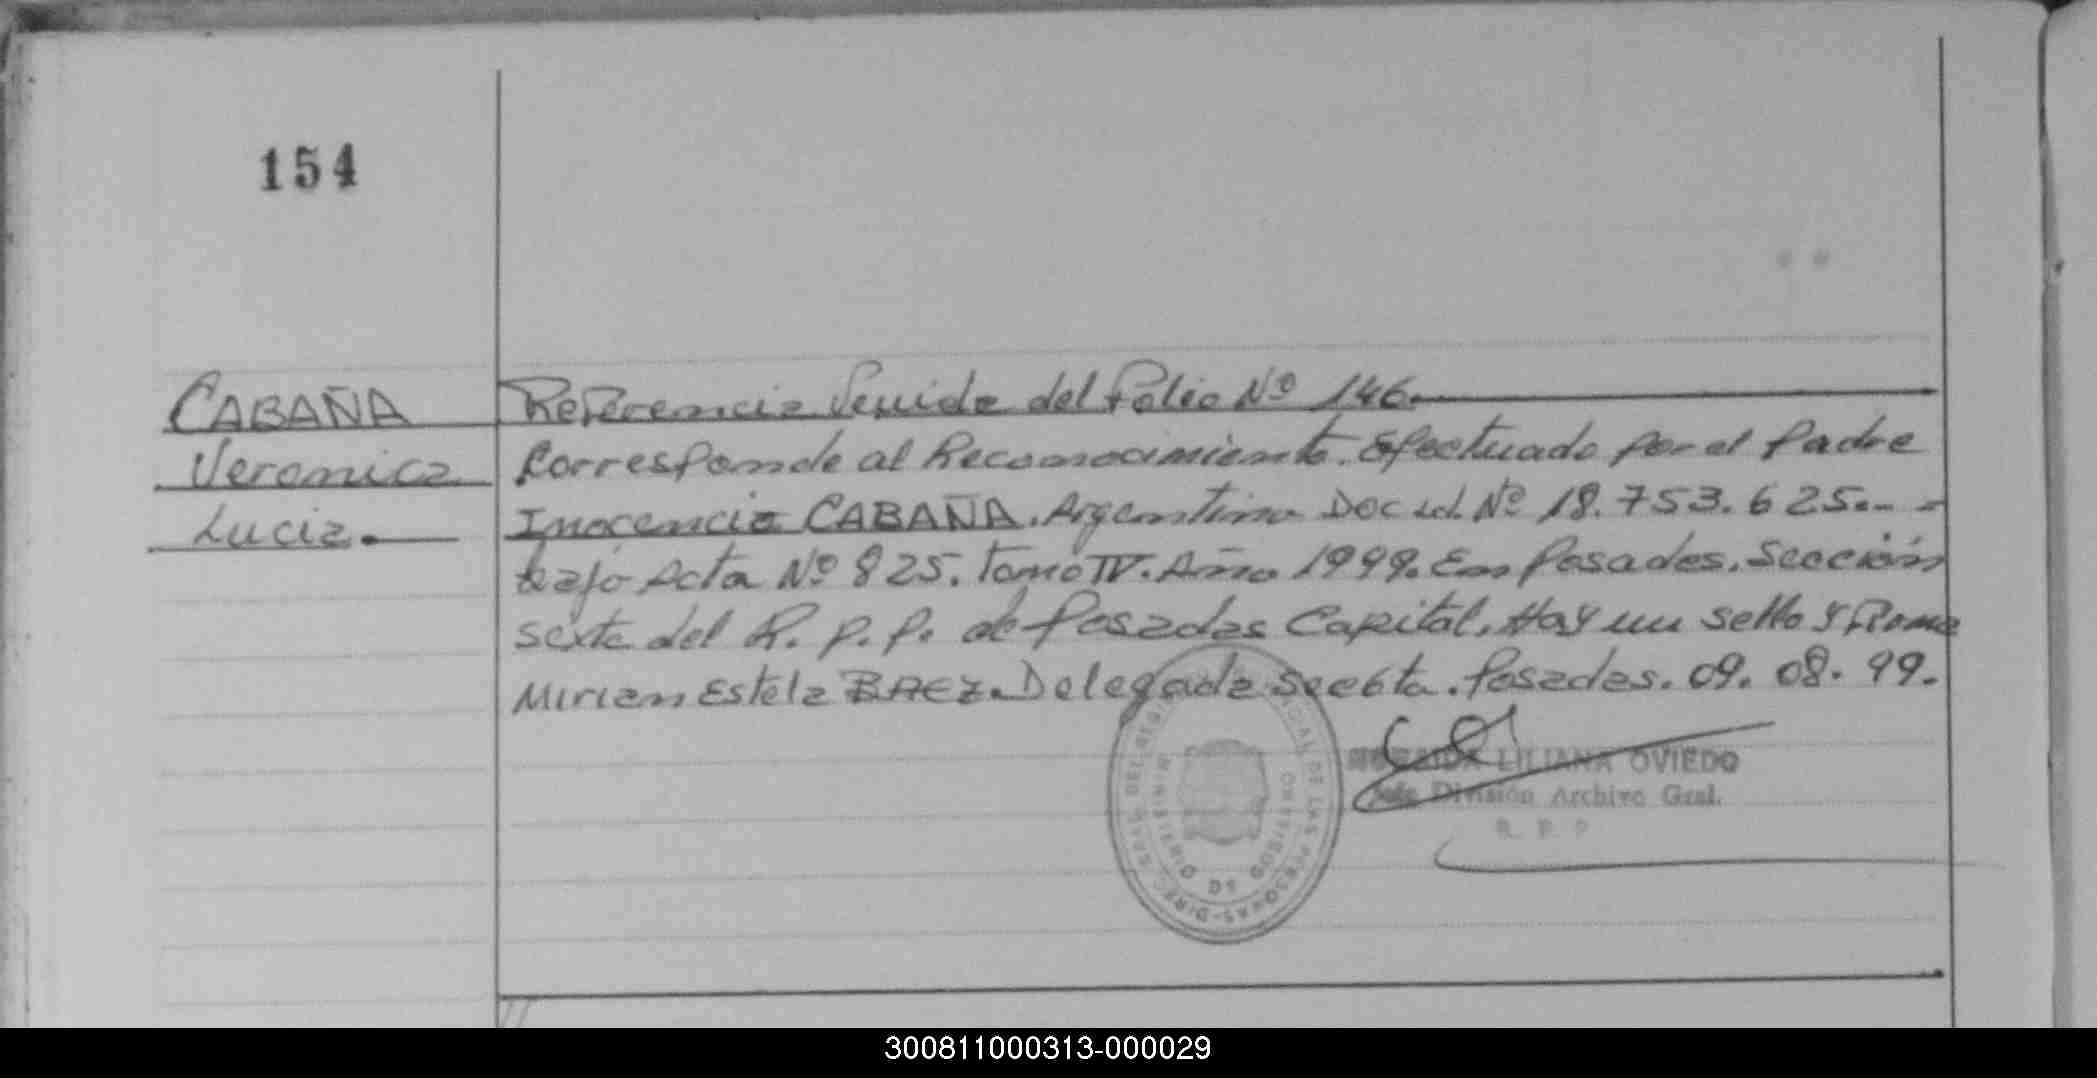 154
CABAÑA
Veronica
Lucia.
Referencia Venida del Folio Nº 146.
Corresponde al Reconocimiento. Efectuado por el Padre
Inocencio CABAÑA. Argentino Doc id. Nº 18.753.625.-
bajo Acta Nº 825. Tomo IV. Año 1999. En Posadas. Sección
sexta del R. P. P. de Posadas Capital. Hay un sello y Firma
Mirian Estela BAEZ. Delegada Secta. Posadas. 09. 08. 99.
LILIANA OVIEDO
Jefe División Archivo Gral.
R. P. P
MINISTERIO DE GOBIERNO
300811000313-000029